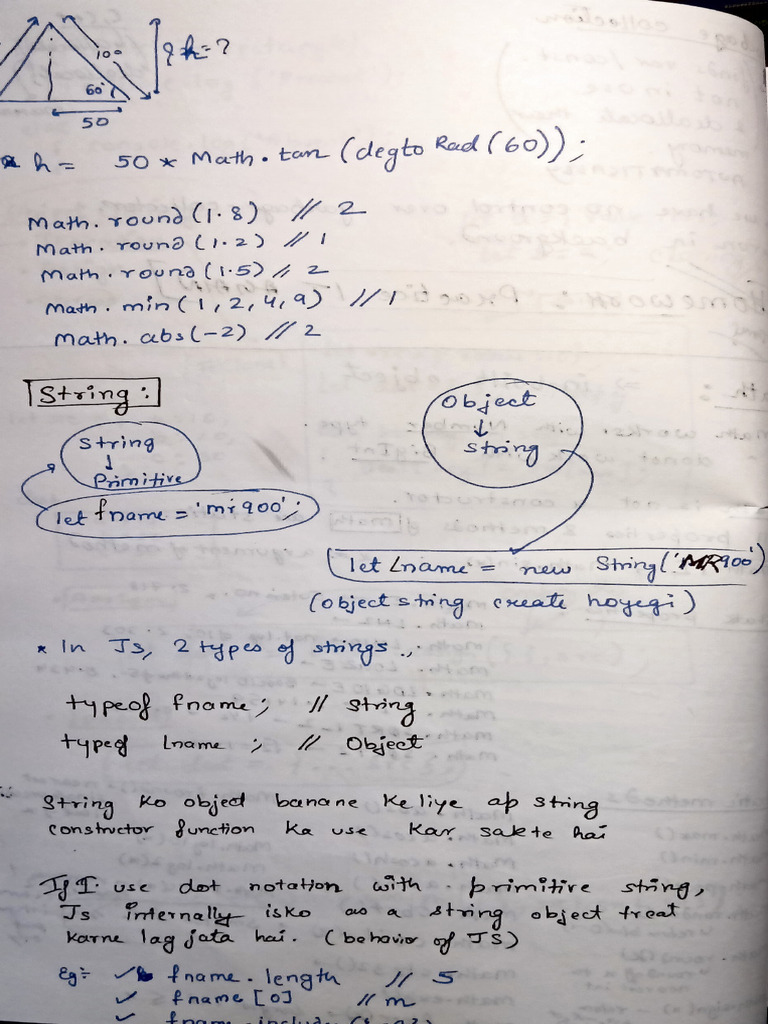 100
h = ?
60°
50
* h = 50 * Math.tan (degto Rad (60));
Math.round (1.8) // 2
Math.round (1.2) // 1
Math.round (1.5) // 2
Math.min (1, 2, 4, 9) // 1
Math.abs (-2) // 2
String :
String
↓
Primitive
let fname = 'mr900';
Object
↓
String
let Lname = new String('MR900')
(object string create hoyegi)
* In Js, 2 types of strings
typeof fname; // String
typeof Lname ; // Object
String ko object banane ke liye ap string
constructor function ka use kar sakte hai
If I use dot notation with primitive string,
Js internally isko as a string object treat
karne lag jata hai. (behavior of JS)
Eg:- ✓ fname.length // 5
✓ fname [0] // m
✓